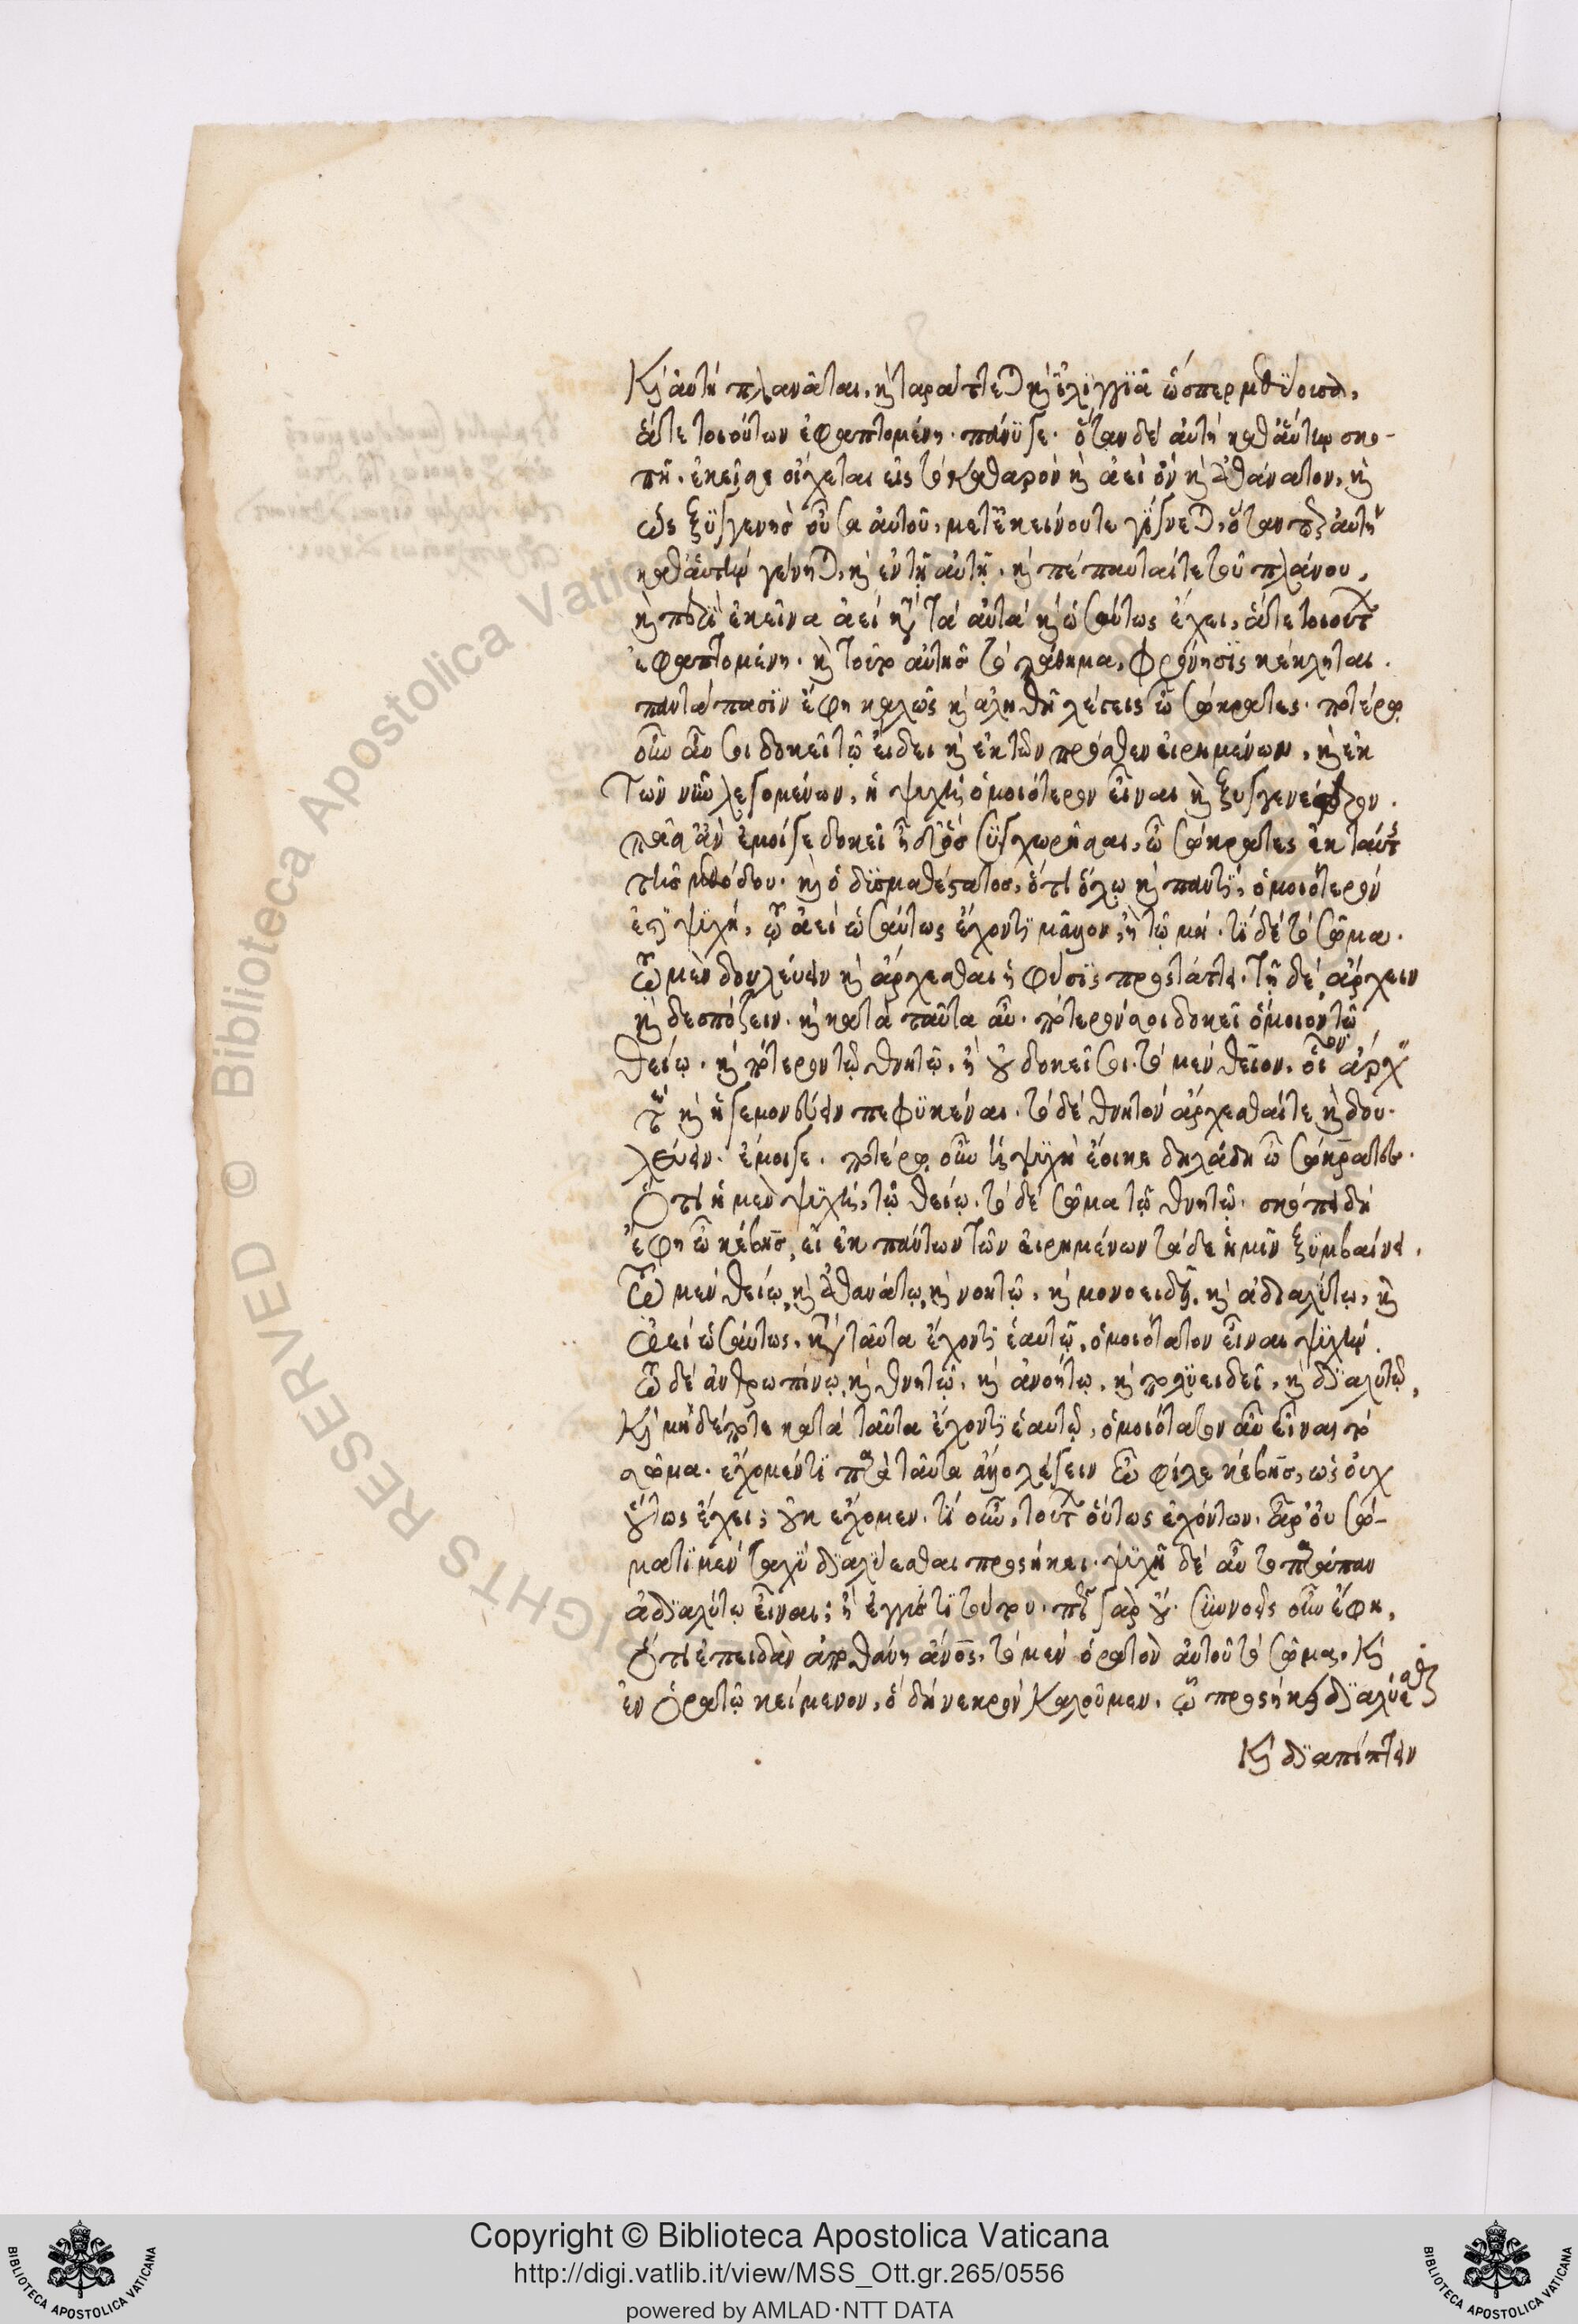 Καὶ αὐτὴ πλανᾶται, καὶ ταράττεται καὶ ἰλιγγιᾷ ὥσπερ μεθύουσα,
ἅτε τοιούτων ἐφαπτομένη. πάνυ γε. ὅταν δέ αὐτὴ καθ' αὑτὴν σκο-
πῆ. ἐκεῖσε οἴχεται εἰς τὸ καθαρόν καὶ ἀεὶ ὄν καὶ ἀθάνατον, καὶ
ὡς ξυγγενὴς οὖσα αὐτοῦ, μετ' ἐκείνου τε γίγνεται, ὅταν περ αὐτὴ
καθ' αὑτὴν γένηται, καὶ ἐν τῇ αὐτῇ. καὶ πέπαυταί τε τοῦ πλάνου,
καὶ περὶ ἐκεῖνα ἀεί κατὰ τὰ αὐτὰ καὶ ὡσαύτως ἔχει, ἅτε τοιούτων
ἐφαπτομένη. καὶ τοῦτο αὐτῆς τὸ πάθημα, φρόνησις κέκληται.
παντάπασιν ἔφη καλῶς καὶ ἀληθῆ λέγεις ὦ σώκρατες. ποτέρῳ
οὖν αὖ σοι δοκεῖ τῷ εἴδει καὶ ἐκ τῶν πρόσθεν εἰρημένων, καὶ ἐκ
τῶν νῦν λεγομένων, ἡ ψυχὴ ὁμοιότερον εἶναι καὶ ξυγγενέστερον.
πᾶς ἂν ἐμοί γε δοκεῖ ἦ δ' ὅς συγχωρῆσαι, ὦ σώκρατες ἐκ ταύτης
τῆς μεθόδου. καὶ ὁ δυσμαθέστατος, ὅτι ὅλῳ καὶ παντί, ὁμοιότερόν
ἐστι ψυχή, τῷ ἀεί ὡσαύτως ἔχοντι μᾶλλον, ἢ τῷ μή. τί δέ τὸ σῶμα.
τῷ μὲν δουλεύειν καὶ ἄρχεσθαι ἡ φύσις προστάττει. τῇ δέ ἄρχειν
καὶ δεσπόζειν. καὶ κατὰ ταῦτα αὖ. πότερόν σοι δοκεῖ ὅμοιον τῷ
θείῳ. καὶ πότερον τῷ θνητῷ, ἢ οὐ δοκεῖ σοι. τὸ μέν θεῖον, οἷον ἄρχειν
τε καὶ ἡγεμονεύειν πεφυκέναι. τὸ δέ θνητόν ἄρχεσθαί τε καὶ δου-
λεύειν. ἔμοιγε. ποτέρῳ οὖν ἡ ψυχὴ ἔοικε δηλαδὴ ὦ σώκρατες.
Ὅτι ἡ μὲν ψυχή, τῷ θείῳ. τὸ δέ σῶμα τῷ θνητῷ. σκόπει δή
ἔφη ὦ κέβης, εἰ ἐκ πάντων τῶν εἰρημένων τάδε ἡμῖν ξυμβαίνει.
Τῷ μέν θείῳ καὶ ἀθανάτῳ καὶ νοητῷ, καὶ μονοειδῆ, καὶ ἀδιαλύτῳ, καὶ
ἀεί ὡσαύτως, κατὰ ταῦτα ἔχοντι ἑαυτῷ, ὁμοιότατον εἶναι ψυχήν.
τῷ δέ ἀνθρωπίνῳ καὶ θνητῷ, καὶ ἀνοήτῳ, καὶ πολυειδεῖ, καὶ διαλυτῷ,
Καὶ μηδέποτε κατὰ ταῦτα ἔχοντι ἑαυτῷ, ὁμοιότατον αὖ εἶναι τό
σῶμα. ἔχομέν τι παρὰ ταῦτα ἄλλο λέγειν ὦ φίλε κέβης, ὡς οὐχ
οὕτως ἔχει; οὐκ ἔχομεν. τί οὖν, τούτων οὕτως ἐχόντων. ἆρ' οὐ σώ-
ματι μέν ταχύ διαλύεσθαι προσήκει. ψυχῇ δέ αὖ τὸ παράπαν
ἀδιαλύτῳ εἶναι; ἢ ἐγγύς τι τούτου. πῶς γὰρ οὔ. ἐννοεῖς οὖν ἔφη,
Ὅτι ἐπειδὰν ἀποθάνῃ ἄνος, τὸ μέν ὁρατὸν αὐτοῦ τὸ σῶμα, Καὶ
ἐν ὁρατῷ κείμενον, ὃ δὴ νεκρόν καλοῦμεν, ᾧ προσήκει διαλύεσθαι
Καὶ διαπίπτειν
Copyright © Biblioteca Apostolica Vaticana
http://digi.vatlib.it/view/MSS_Ott.gr.265/0556
powered by AMLAD·NTT DATA
BIBLIOTECA APOSTOLICA VATICANA
BIBLIOTECA APOSTOLICA VATICANA